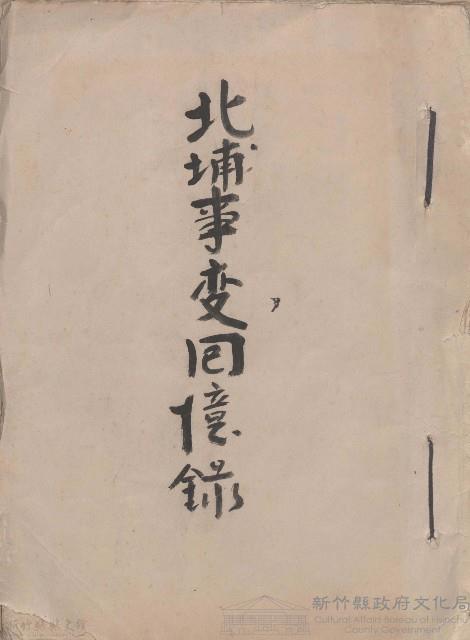 北埔事变回憶錄
新竹縣政府文化局
Cultural Affairs Bureau of Hsinchu
County Government